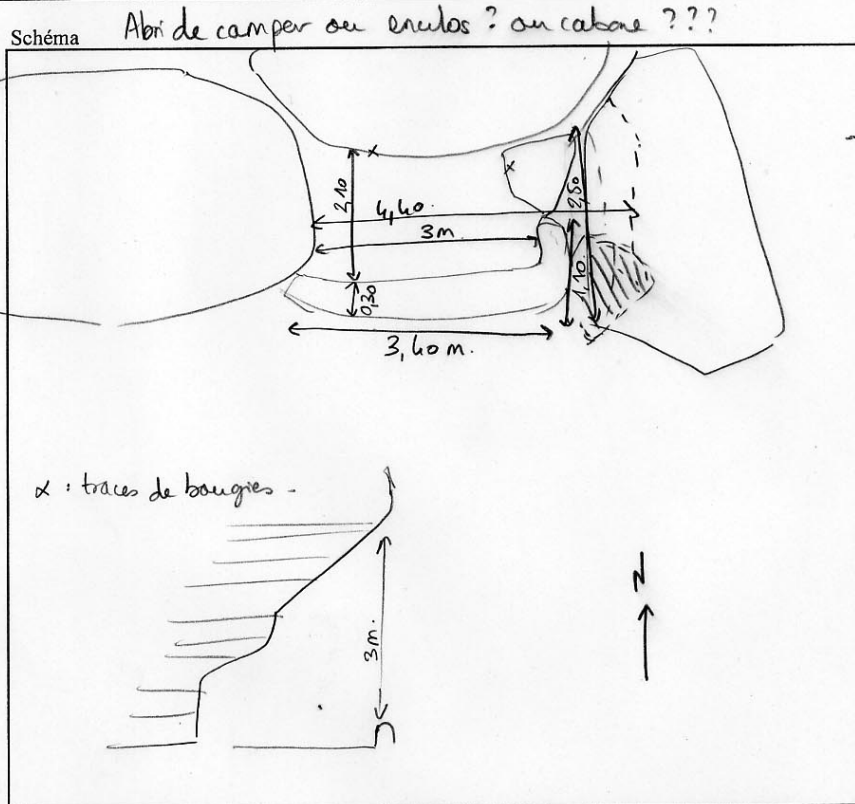 Schéma
Abri de camper ou enclos ? ou cabane ???
x
x
2,10
4,40
2,50
3m
1,10
0,30
3,40 m.
x : traces de bougies -
3m.
N